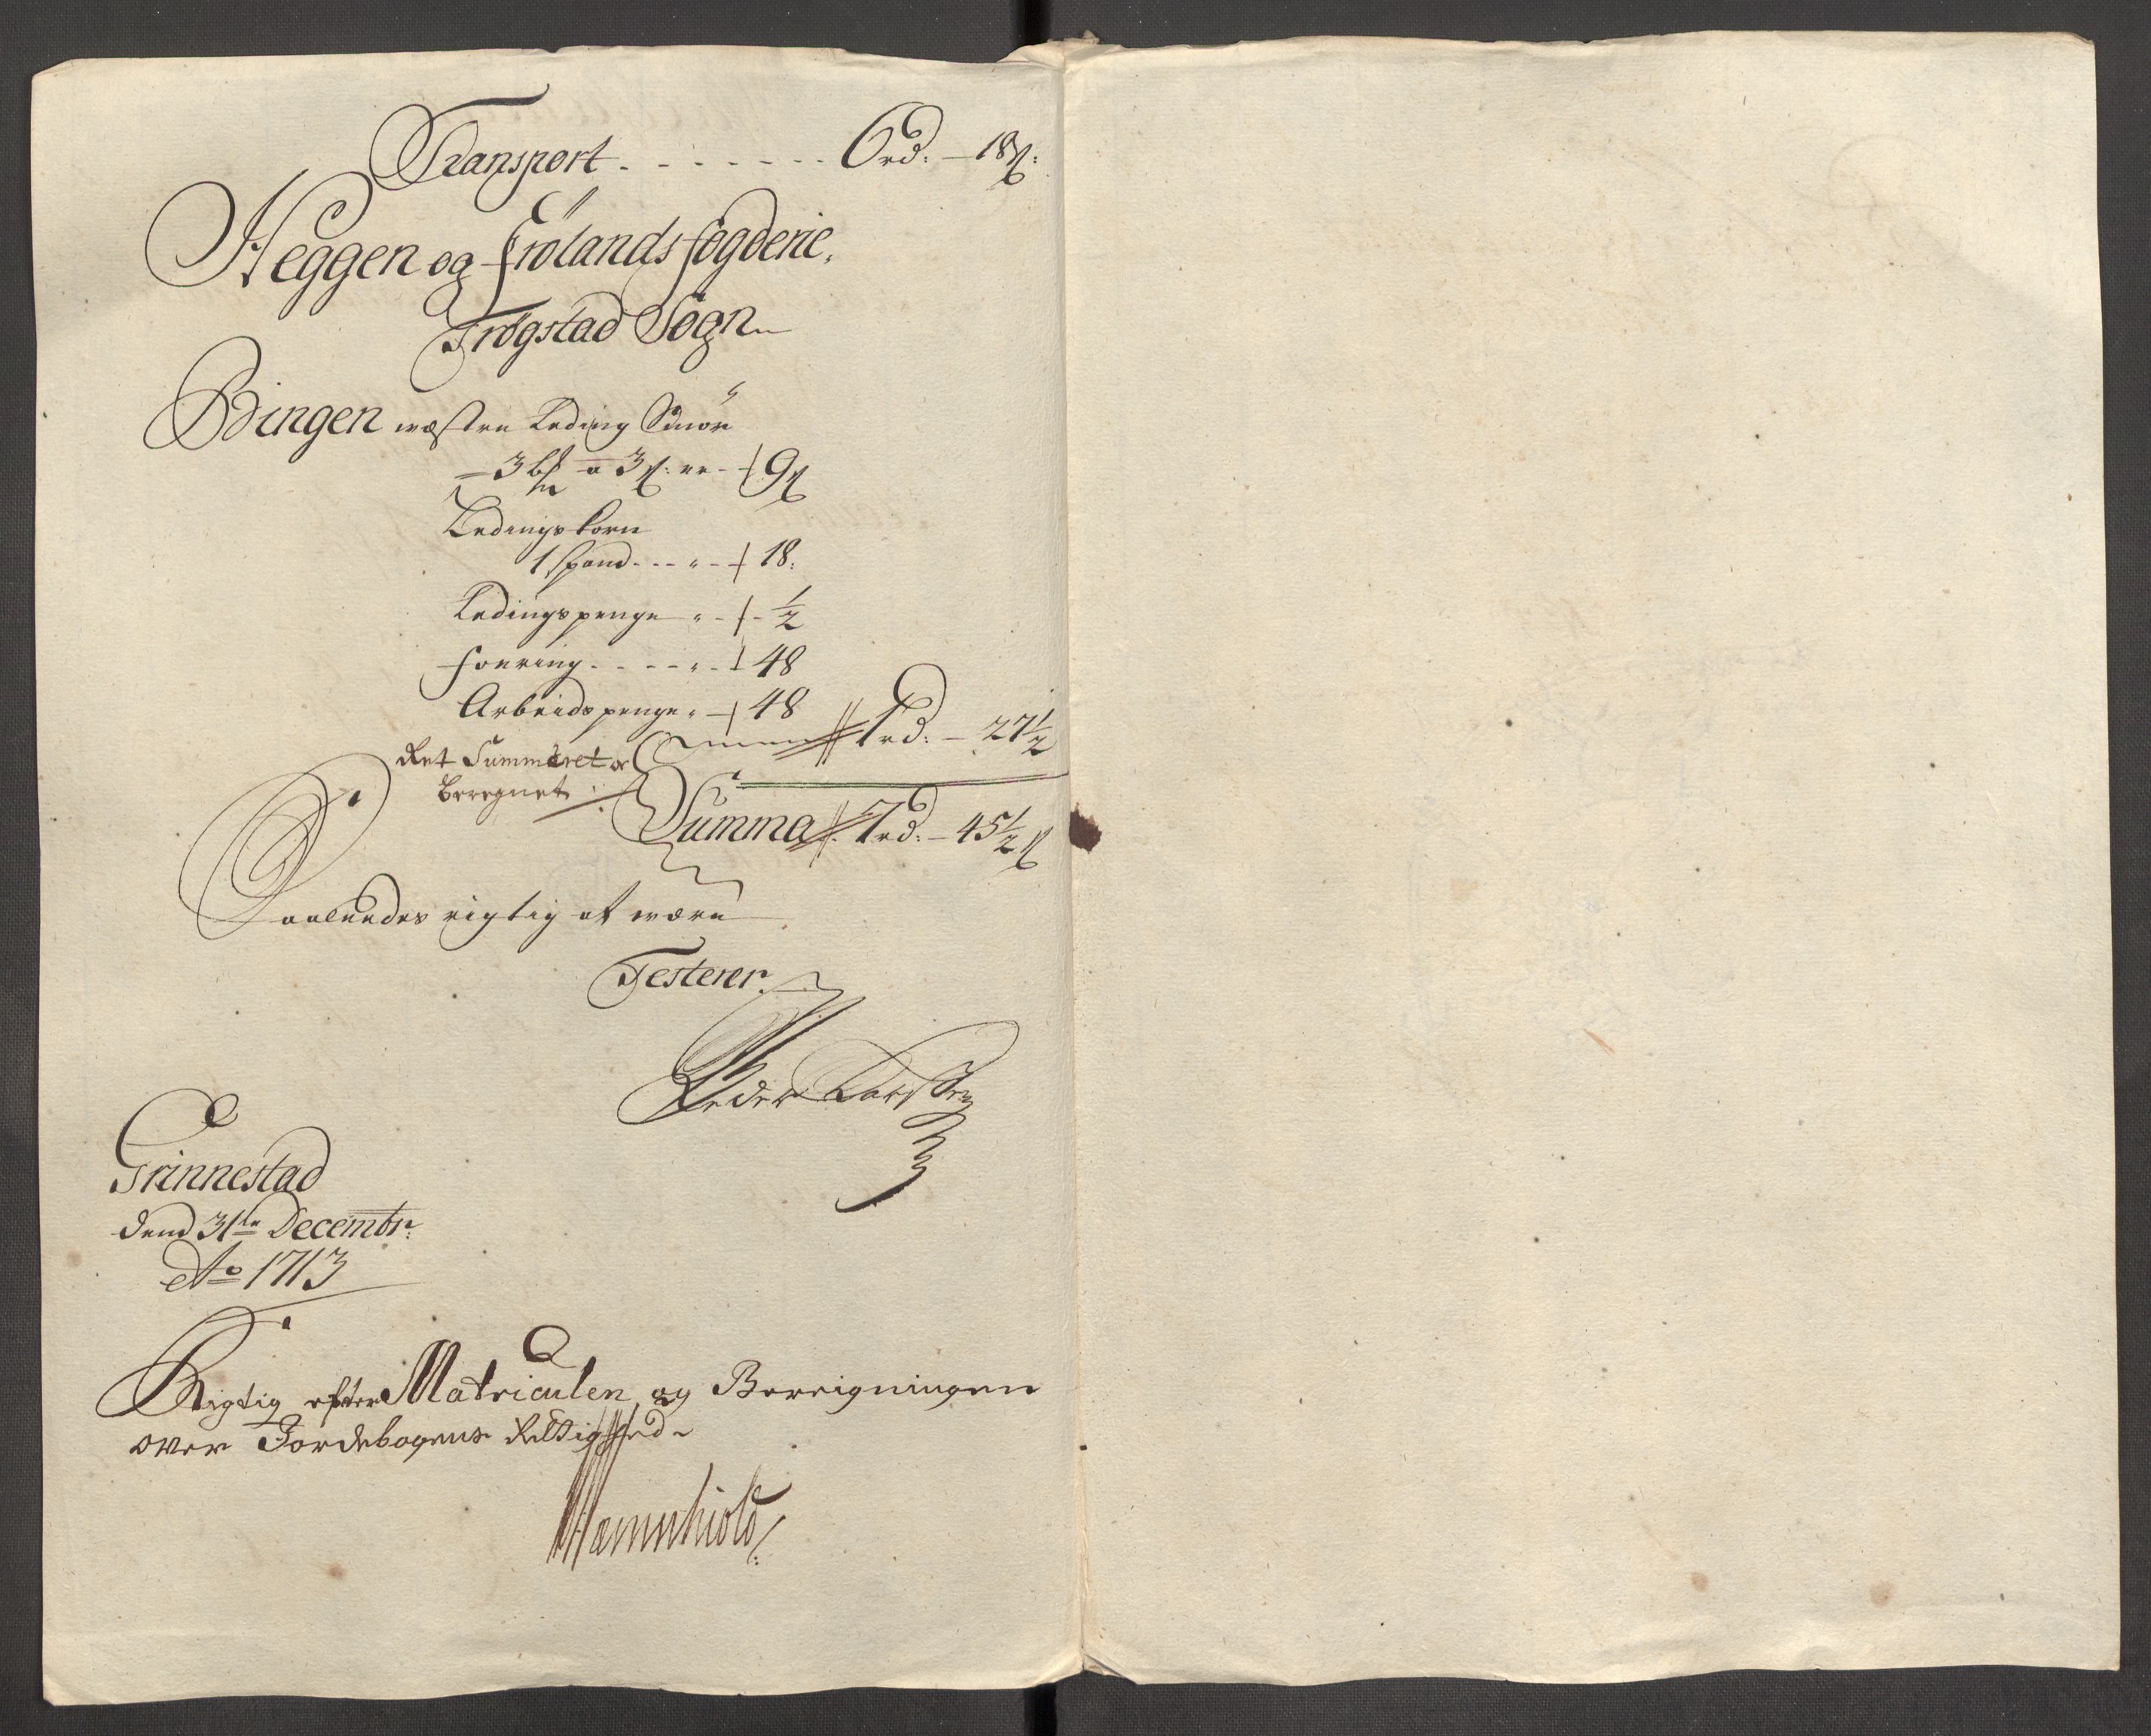 Transport - - - - - - - 6 rd: - 18 ß:
Heggen og Frölands fogderie.
Trögstad Sogn
Bdingen wæstre Leding Smör
- 3 bß a 3 ß: er - 9 ß
Ledingskorn
1 spand - - - " - 18:
Ledingspenge " - - ½
foering - - - - " - 48
Arbeidspenge " - 48
1 rd: - 27½
Ret Summeret oc
beregnet
Summa 7 rd: - 45½ ß
Saaledes rigtig at være
Testerer
Peder Larssen
Grinnestad
dend 31te Decembr:
Ao 1713
Rigtig efter Matriculen og Berrigningen
over Jordebogens Rettighed